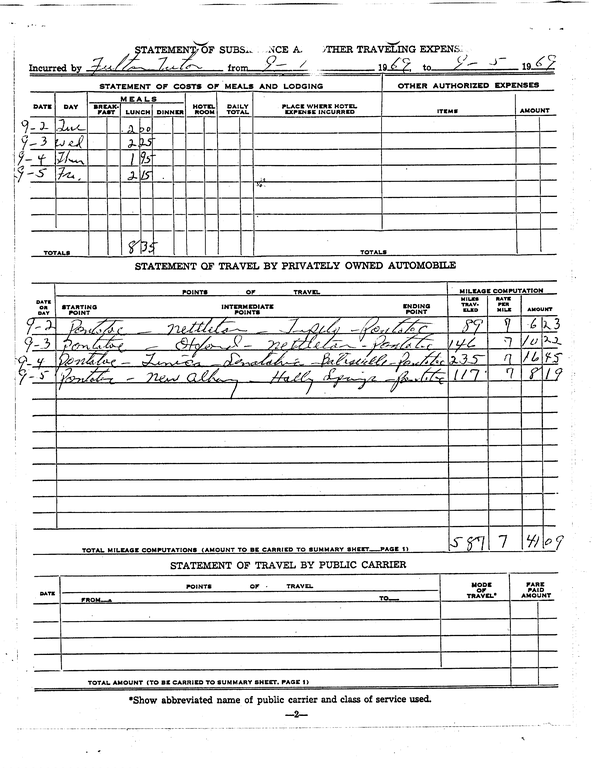 STATEMENT OF SUBS NCE A THER TRAVELING EXPENS
Incurred by Fulton Tutor from 9-1 1969 to 9-5 1969
STATEMENT OF COSTS OF MEALS AND LODGING OTHER AUTHORIZED EXPENSES
DATE DAY MEALS BREAK-FAST LUNCH DINNER HOTEL ROOM DAILY TOTAL PLACE WHERE HOTEL EXPENSE INCURRED ITEMS AMOUNT
9-2 Tue 2 00
9-3 Wed 2 25
9-4 Thu 1 95
9-5 Fri. 2 15
TOTALS 8 35 TOTALS
STATEMENT OF TRAVEL BY PRIVATELY OWNED AUTOMOBILE
POINTS OF TRAVEL MILEAGE COMPUTATION
DATE OR DAY STARTING POINT INTERMEDIATE POINTS ENDING POINT MILES TRAV-ELED RATE PER MILE AMOUNT
9-2 Pontotoc - Nettleton - Tupelo - Pontotoc 89 7 6 23
9-3 Pontotoc - Oxford - Nettleton - Pontotoc 146 7 10 22
9-4 Pontotoc - Tunica - Senatobia - Batesville - Pontotoc 235 7 16 45
9-5 Pontotoc - New Albany - Holly Springs - Pontotoc 117 7 8 19
TOTAL MILEAGE COMPUTATIONS (AMOUNT TO BE CARRIED TO SUMMARY SHEET PAGE 1) 587 7 41 09
STATEMENT OF TRAVEL BY PUBLIC CARRIER
DATE POINTS OF TRAVEL MODE OF TRAVEL* FARE PAID AMOUNT
FROM TO
TOTAL AMOUNT (TO BE CARRIED TO SUMMARY SHEET, PAGE 1)
*Show abbreviated name of public carrier and class of service used.
—2—